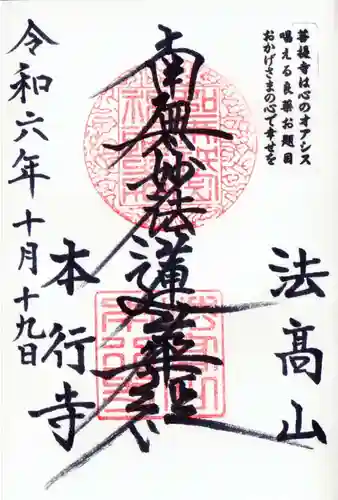 菩提寺は心のオアシス
唱える良薬お題目
おかげさまの心で幸せを
法髙山
南無妙法蓮華経
本行寺
令和六年十月十九日